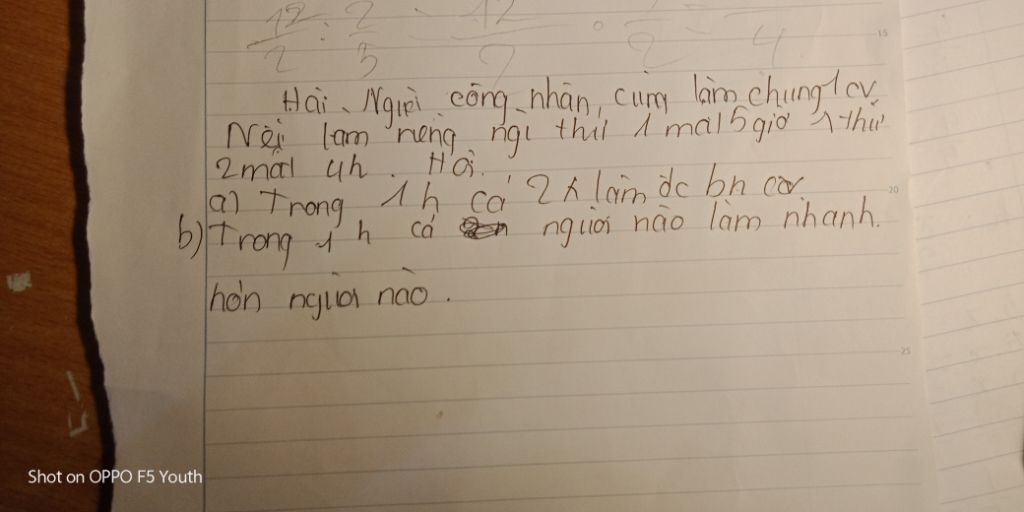 12/2 : 2/3 = 12/2
15
Hai Người công nhân, cùng làm chung 1 cv
Nếu làm riêng ngì thứ 1 mất 5 giờ 1 thứ
2 mất 4h. Hỏi.
a) Trong 1h cả 2 làm đc bn cv
20
b) Trong 1 h cả người nào làm nhanh.
hơn người nào.
25
Shot on OPPO F5 Youth